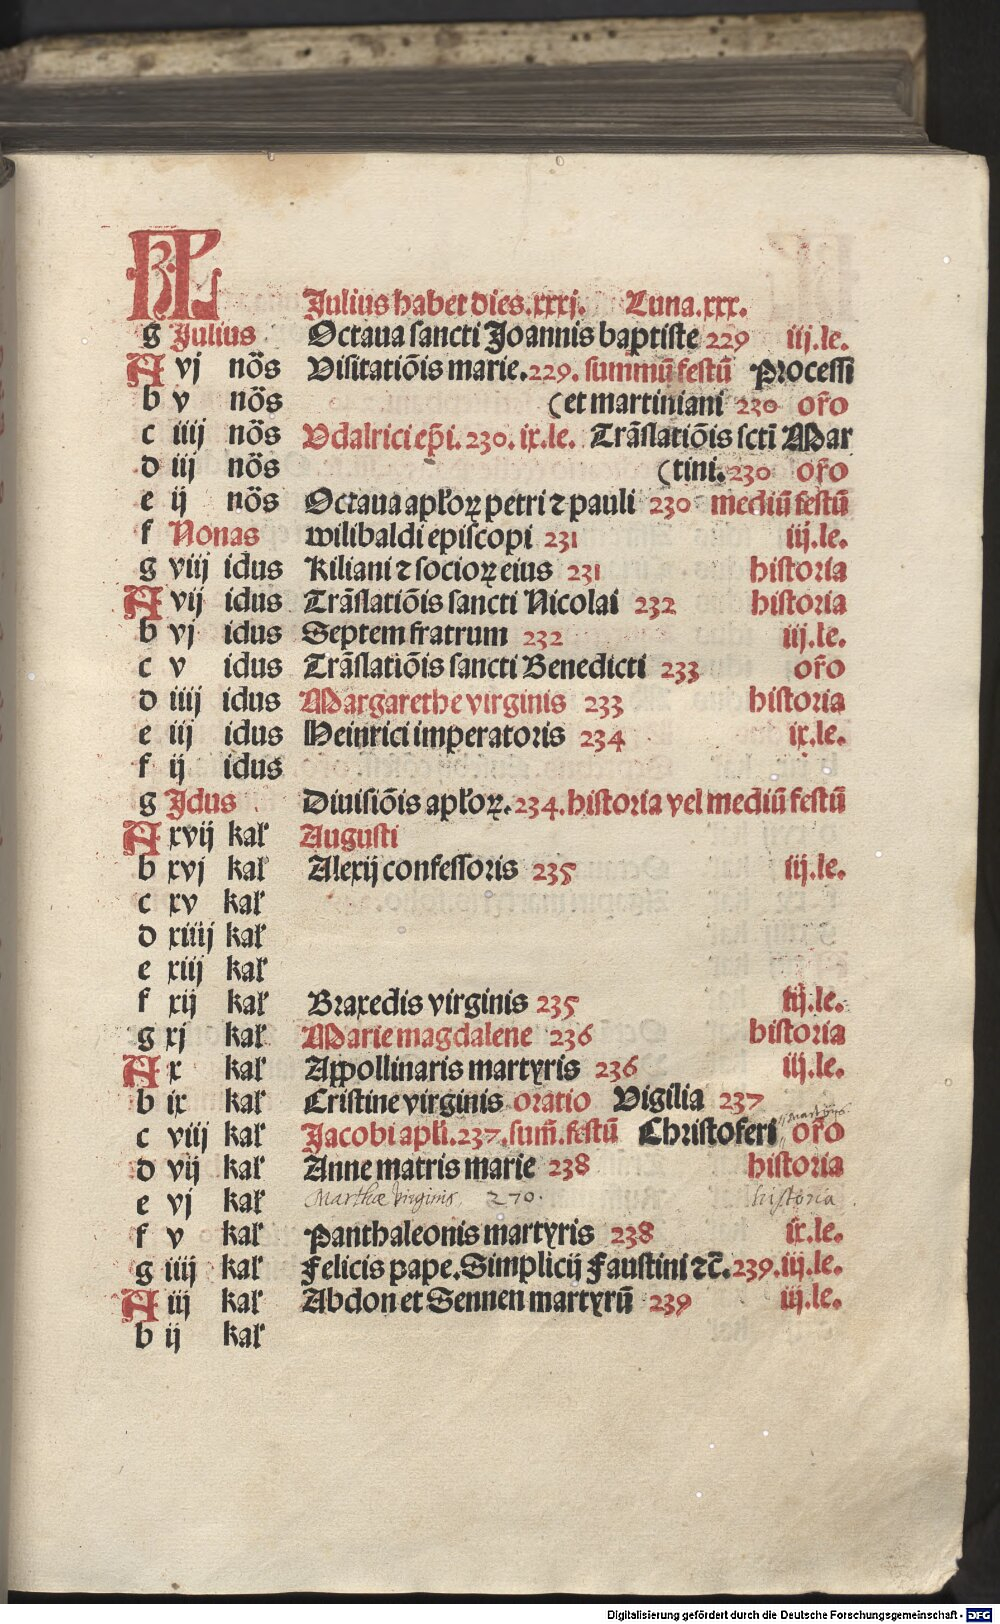 KL
Julius habet dies.xxxj. Luna.xxx.
g Julius Octaua sancti Joannis baptiste 229 iij.le.
A vj nōs Visitatiōis marie.229. summū festū Processi
b v nōs (et martiniani 230 or̄o
c iiij nōs Vdalrici ep̄i.230.ix.le. Trāslatiōis sctī Mar
d iij nōs (tini.230 or̄o
e ij nōs Octaua apłoꝝ petri ⁊ pauli 230 mediū festū
f Nonas wilibaldi episcopi 231 iij.le.
g viij idus Kiliani ⁊ socioꝝ eius 231 historia
A vij idus Trāslatiōis sancti Nicolai 232 historia
b vj idus Septem fratrum 232 iij.le.
c v idus Trāslatiōis sancti Benedicti 233 or̄o
d iiij idus Margarethe virginis 233 historia
e iij idus Heinrici imperatoris 234 ix.le.
f ij idus
g Jdus Diuisiōis apłoꝝ.234.historia vel mediū festū
A xvij kał Augusti
b xvj kał Alexij confessoris 235 iij.le.
c xv kał
d xiiij kał
e xiij kał
f xij kał Braxedis virginis 235 iij.le.
g xj kał Marie magdalene 236 historia
A x kał Appollinaris martyris 236 iij.le.
b ix kał Cristine virginis oratio Vigilia 237
c viij kał Jacobi apłi.237.sum̄.festū Christoferi martyris or̄o
d vij kał Anne matris marie 238 historia
e vj kał Marthæ virginis 270. historia
f v kał Panthaleonis martyris 238 ix.le.
g iiij kał Felicis pape.Simplicij Faustini ⁊c̄.239.iij.le.
A iij kał Abdon et Sennen martyrū 239 iij.le.
b ij kał
Digitalisierung gefördert durch die Deutsche Forschungsgemeinschaft - DFG